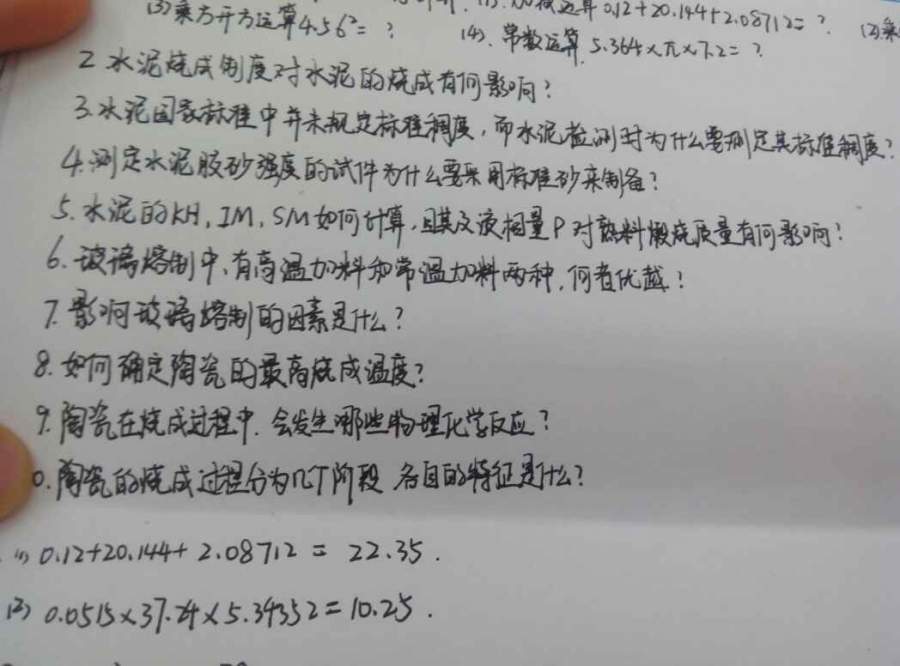 (1). 加减运算 0.12+20.144+2.08712=? (2)乘
(3)乘方开方运算4.56²=? (4). 常数运算. 5.364×π×7.2=?
2 水泥烧成制度对水泥的烧成有何影响?
3.水泥国家标准中并未规定标准稠度,而水泥检测时为什么要测定其标准稠度?
4.测定水泥胶砂强度的试件为什么要采用标准砂来制备?
5.水泥的KH,IM,SM如何计算,且其及液相量P对熟料煅烧质量有何影响?
6.玻璃熔制中,有高温加料和常温加料两种,何者优越?
7.影响玻璃熔制的因素是什么?
8.如何确定陶瓷的最高烧成温度?
9.陶瓷在烧成过程中.会发生哪些物理化学反应?
0.陶瓷的烧成过程分为几个阶段 各自的特征是什么?
(1) 0.12+20.144+2.08712=22.35.
(2) 0.0515×37.24×5.34352=10.25.